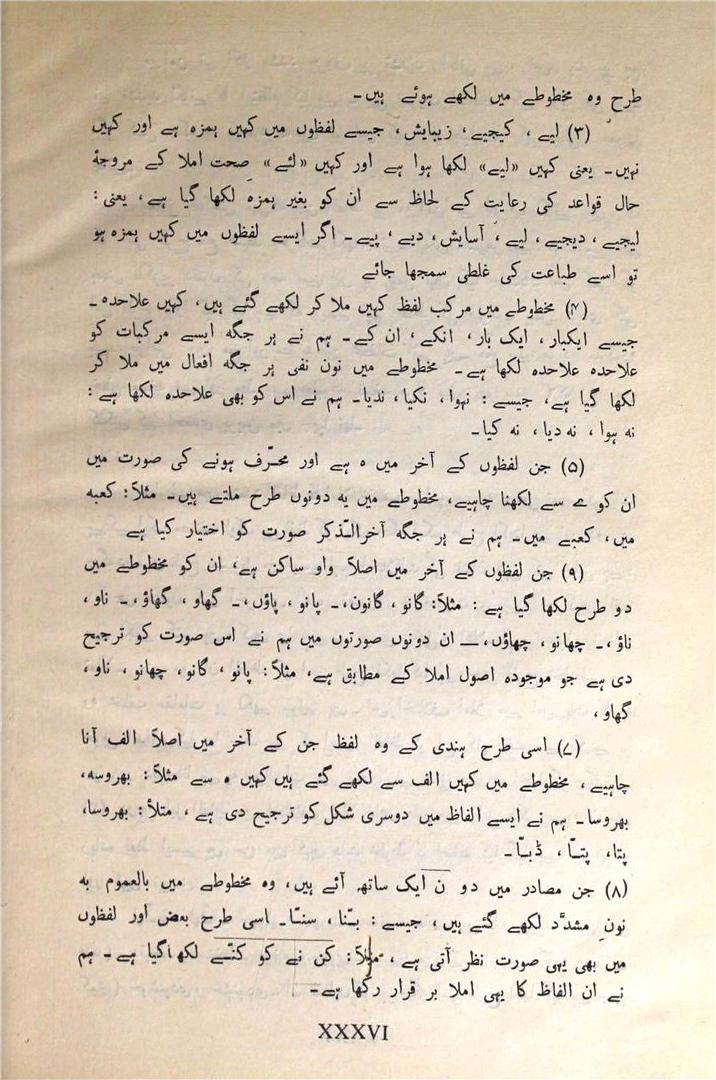 طرح وہ مخطوطے میں لکھے ہوئے ہیں۔
(۳) لیے، کیجیے، زیبایش، جیسے لفظوں میں کہیں ہمزہ ہے اور کہیں
نہیں۔ یعنی کہیں «لیے» لکھا ہوا ہے اور کہیں «لئے» صحت املا کے مروجۂ
حال قواعد کی رعایت کے لحاظ سے ان کو بغیر ہمزہ لکھا گیا ہے، یعنی:
لیجیے، دیجیے، لیے، آسایش، دیے، پیے۔ اگر ایسے لفظوں میں کہیں ہمزہ ہو
تو اسے طباعت کی غلطی سمجھا جائے
(۴) مخطوطے میں مرکب لفظ کہیں ملا کر لکھے گئے ہیں، کہیں علاحدہ۔
جیسے ایکبار، ایک بار، انکے، ان کے۔ ہم نے ہر جگہ ایسے مرکبات کو
علاحدہ علاحدہ لکھا ہے۔ مخطوطے میں نون نفی ہر جگہ افعال میں ملا کر
لکھا گیا ہے، جیسے: نہوا، نکیا، ندیا۔ ہم نے اس کو بھی علاحدہ لکھا ہے:
نہ ہوا، نہ دیا، نہ کیا۔
(۵) جن لفظوں کے آخر میں ہ ہے اور محرّف ہونے کی صورت میں
ان کو ے سے لکھنا چاہیے، مخطوطے میں یہ دونوں طرح ملتے ہیں۔ مثلاً: کعبہ
میں، کعبے میں۔ ہم نے ہر جگہ آخرالذّکر صورت کو اختیار کیا ہے
(۹) جن لفظوں کے آخر میں اصلاً واو ساکن ہے، ان کو مخطوطے میں
دو طرح لکھا گیا ہے: مثلاً: گانو، گانون،۔ پانو، پاؤں،۔ گھاو، گھاؤ،۔ ناو،
ناؤ،۔ چھانو، چھاؤں،— ان دونوں صورتوں میں ہم نے اس صورت کو ترجیح
دی ہے جو موجودہ اصول املا کے مطابق ہے، مثلاً: پانو، گانو، چھانو، ناو،
گھاو،
(۷) اسی طرح ہندی کے وہ لفظ جن کے آخر میں اصلاً الف آنا
چاہیے، مخطوطے میں کہیں الف سے لکھے گئے ہیں کہیں ہ سے مثلاً: بھروسہ،
بھروسا۔ ہم نے ایسے الفاظ میں دوسری شکل کو ترجیح دی ہے، مثلاً: بھروسا،
پتا، پتّا، ڈبّا۔
(۸) جن مصادر میں دو ن ایک ساتھ آئے ہیں، وہ مخطوطے میں بالعموم بہ
نونِ مشدّد لکھے گئے ہیں، جیسے: بنّا، سنّا۔ اسی طرح بعض اور لفظوں
میں بھی یہی صورت نظر آتی ہے، مثلاً: کن نے کو کنّے لکھا گیا ہے۔ ہم
نے ان الفاظ کا یہی املا بر قرار رکھا ہے۔
XXXVI